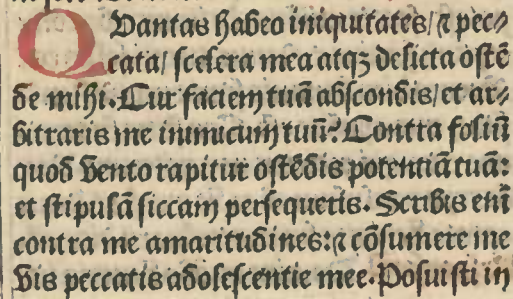 QUantas habeo iniquitates/ ⁊ pec⸗
cata/ scelera mea atqꝫ delicta ostē
de mihi. Cur faciem tuā abscondis/ et ar⸗
bitraris me inimicum tuū? Contra foliū
quod vento rapitur ostēdis potentiā tuā:
et stipulā siccam persequeris. Scribis eni̅
contra me amaritudines: ⁊ cōsumere me
vis peccatis adolescentie mee. Posuisti in